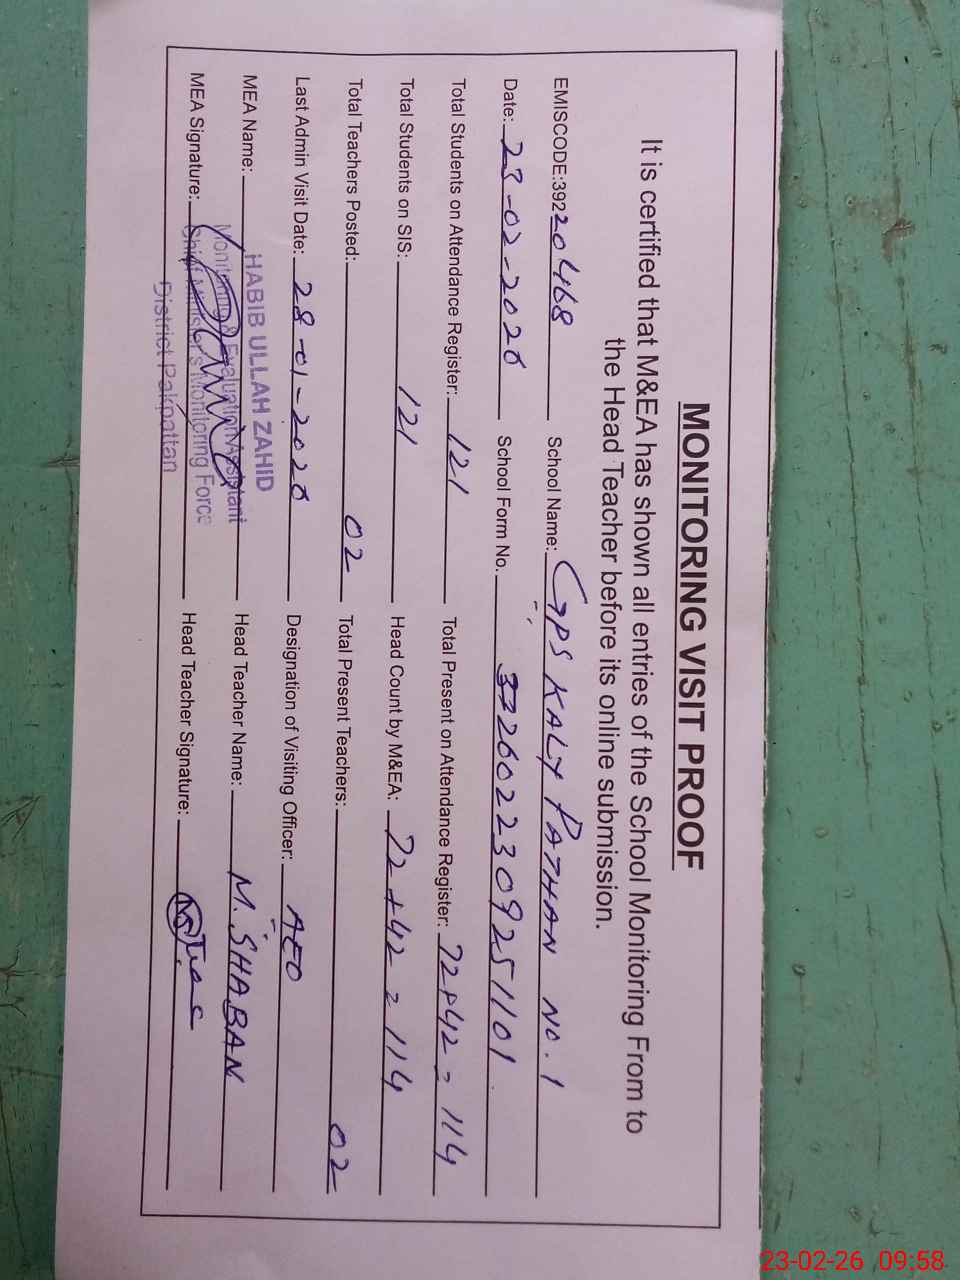 MONITORING VISIT PROOF
It is certified that M&EA has shown all entries of the School Monitoring From to
the Head Teacher before its online submission.
EMISCODE:39220468 School Name: GPS KALY PATHAN NO.1
Date: 23-02-2026 School Form No. 3726022309251101
Total Students on Attendance Register: 121 Total Present on Attendance Register: 72+42=114
Total Students on SIS: 121 Head Count by M&EA: 72+42=114
Total Teachers Posted: 02 Total Present Teachers: 02
Last Admin Visit Date: 28-01-2026 Designation of Visiting Officer: AEO
MEA Name: HABIB ULLAH ZAHID Head Teacher Name: M. SHABAN
Monitoring & Evaluation Assistant
MEA Signature: Chief Minister's Monitoring Force Head Teacher Signature:
District Pakpattan
23-02-26 09:58